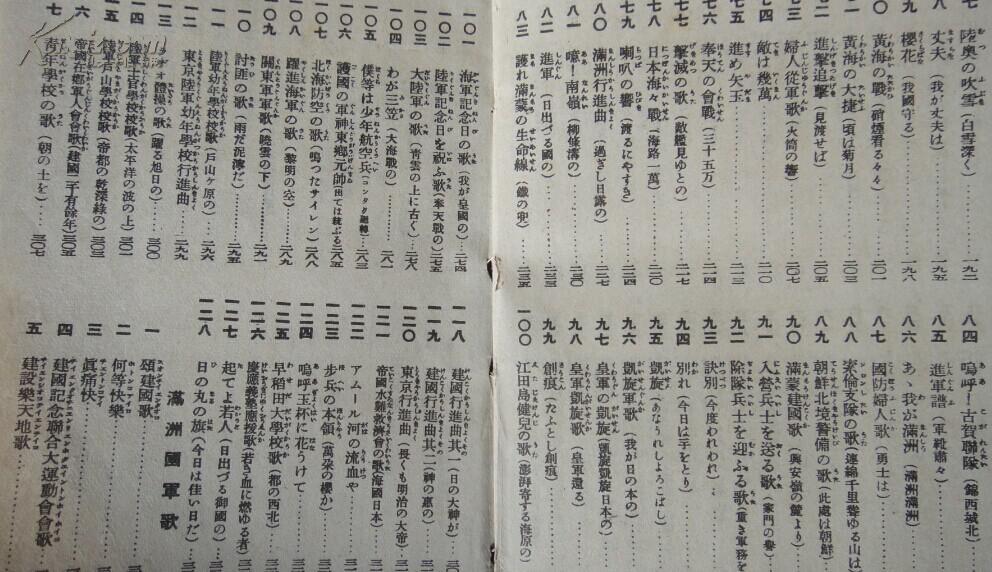 陸奥の吹雪(白雪深く)…一九二
八 丈夫(我が丈夫は)…一九五
九 櫻花(我國守る)…一九八
黃海の戰(硝煙看る々々)…二〇一
黃海の大捷(頃は菊月)…二〇三
進擊追擊(見渡せば)…二〇五
婦人從軍歌(火筒の響)…二〇七
七四 敵は幾萬…二一〇
七五 進め矢玉…二一三
七六 奉天の會戰(三十五万)…二一四
七七 擊滅の歌(敵艦見ゆとの)…二一七
七八 日本海々戰(海路一萬)…二二〇
七九 喇叭の響(渡るにやすき)
八〇 滿洲行進曲(過ぎし日露の)
八一 噫!南嶺(柳條溝の)
八二 進軍(日出づる國の)
八三 護れ滿蒙の生命線(鐵の兜)…二三五
八四 嗚呼!古賀聯隊(錦西城北)
八五 進軍譜(軍靴肅々)
八六 あゝ我が滿洲(滿洲滿洲)
八七 國防婦人歌(勇士は)
八八 索倫支隊の歌(連綿千里聳ゆる山は)
八九 朝鮮北境警備の歌(此處は朝鮮)
九〇 滿蒙建國歌(興安嶺の麓より)
九一 入營兵士を送る歌(家門の譽)
九二 除隊兵士を迎ふる歌(重き軍務を
九三 訣別(今度われわれ)
九四 別れ(今日は手をとり)
九五 凱旋(あなうれしよろこばし)
九六 凱旋軍歌(我が日の本の)
九七 皇軍の凱旋(凱旋凱旋日本の)
九八 皇軍凱旋歌(皇軍還る)
九九 創痕(たふとし創痕)
一〇〇 江田島健兒の歌(澎湃寄する海原の)
一〇一 海軍記念日の歌(我が皇國の)…二七四
一〇二 陸軍記念日を祝ふ歌(奉天戰の)…二七五
一〇三 大陸軍の歌(青雲の上に古く)…二七八
一〇四 わが三笠(大海戰の)
一〇五 僕等は少年航空兵(コンタク廻轉)…二八三
一〇六 護國の軍神東鄕元帥(出ては統ぶる)…二八五
一〇七 北海防空の歌(鳴つたサイレン)…二八八
一〇八 躍進海軍の歌(黎明の空)…二八九
一〇九 關東軍軍歌(曉雲の下)…二九一
一一〇 討匪の歌(雨だ泥濘だ)…二九五
一一一 陸軍幼年學校校歌(戶山ヶ原の)…二九六
一一二 東京陸軍幼年學校行進曲…二九九
一一三 ラヂオ體操の歌(躍る旭日の)…三〇〇
一一四 陸軍士官學校校歌(太平洋の波の上)…三〇一
一一五 陸軍戶山學校校歌(帝都の乾深綠の)…三〇三
一一六 帝國在鄕軍人會會歌(建國二千有餘年)…三〇五
一一七 青年學校の歌(朝の土を)…三〇七
一一八 建國行進曲其一(日の大神が)
一一九 建國行進曲其二(神の惠の)
一二〇 東京行進曲(長くも明治の大帝)
一二一 帝國水難救濟會の歌(海國日本)
一二二 アムール河の流血や
一二三 步兵の本領(萬朶の櫻か)
一二四 嗚呼玉杯に花うけて
一二五 早稻田大學校歌(都の西北)
一二六 慶應義塾應援歌(若き血に燃ゆる者)
一二七 起てよ若人(日出づる御國の)
一二八 日の丸の旗(今日は佳い日だ)
滿洲國軍歌
一 頌建國歌
二 何等快樂
三 眞痛快
四 建國記念聯合大運動會會歌
五 建設樂天地歌